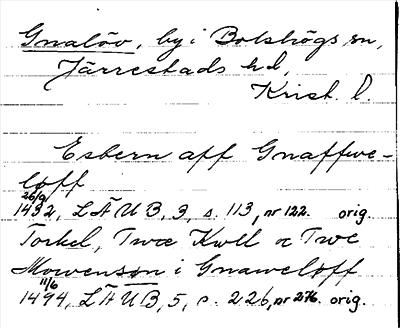 Gnalöv, by i Bolshögs sn,
Järrestads hd,
Krist. l.
Esbern aff Gnaffwe-
löff
26/9
1432, LÄUB, 3, s. 113, nr 122. orig.
Torkel, Twæ Kwll oc Twe
Mowenson i Gnaweloff
11/6
1494, LÄUB, 5, s. 226, nr 276. orig.